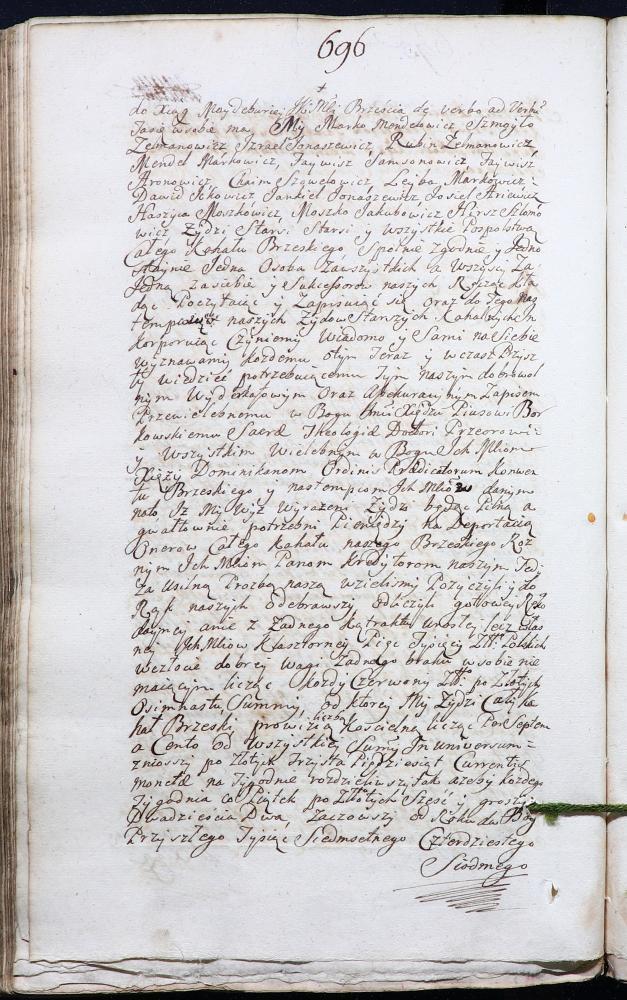 696
do Xiąg Maydeburii JKr Mśi Brzescia de verbo ad Verbū
Taśię w sobie ma. My Marko Mendelowicz Szmoyło
Zelmanowicz Izrael Jonaszewicz, Rubin Zelmanowicz,
Mendel Markowicz, Faywisz Samsonowicz, Faywisz
Aronowicz, Chaim Szowelowicz, Leyba Markowicz:
Dawid Ickowicz Jankiel Jonaszewicz Josiel Ariewicz
Haszyia Moszkowicz, Moszko Jakubowicz Hirsz Szlomo
wicz Zydzi Starsi. Starsi y wszystkie Pospolstwo
Całego Kahału Brzeskiego, Społnie zgodnie y Jedno
staynie Jedna Osoba Zawszystkich a Wszyscy Za
Jedną zasiebie y Sukcessorow naszych Ręcząc kła
dąc Poczytaiąc y Zapisuiąc się oraz do tego nas
tempcow naszych Zydow Starszych Kahalnych In
korporuiąc Czyniemy Wiadomo y Sami na Siebie
wyznawamy kozdemu otym Teraz y wczas Przysz
ły wiedzieć potrzebuiącemu Tym naszym dobrowol
nym Wyderkafowym Oraz Assekuracyinym Zapisem
Przewielebnemu w Bogu Jmści Xiędzu Piusowi Bor
kowskiemu Sacræ Theologiæ Doctori Przeorowi
y Wszystkim Wielebnym w Bogu Ich Mściom
Xięży Dominikanom Ordinis Prædicatorum Konwen
tu Brzeskiego y nastempcom Ich Mściow danym
nato Iz My Wyż wyrazeni Zydzi będąc Pilno a
gwałtownie potrzebni Pieniędzy na Deportacią
Onerow Całego Kahału naszego Brzeskiego Roz
nym Ich Mściom Panom Kredytorom naszym Tedy
za Usilną Prozbą naszą wzielismy Pozyczyli y do
Rąk naszych Odebrawszy odliczyli gotowey Ręko
dayney a nie z Zadnego kątraktu urosłey lecz włas
ney Ich Mściow Klasztorney Pięc Tysięcy Złłch Polskich
wezłocie dobrey wagi Zadnego braku w sobie nie
maiącym licząc kozdy Czerwony Złł po Złotych
Osimnastu, Summy, od ktorey My Zydzi Cały Ka
hał Brzeski, prowizią liczbą Koscielną licząc Per Septem
a Cento od wszystkiey Sumy In universum=
zniosszy po Złotych Trzysta Pięcdziesiąt Currentis
moneta na Tygodnie rozdzieliwszy tak azeby kozdego
Tygodnia co Piątek po Złotych Szesc y groszy
Dwadziescia Dwa, Zaczowszy od Roku da Bog
Przyszłego Tysiąc Siedmsetnego Czterdziestego
Siodmego